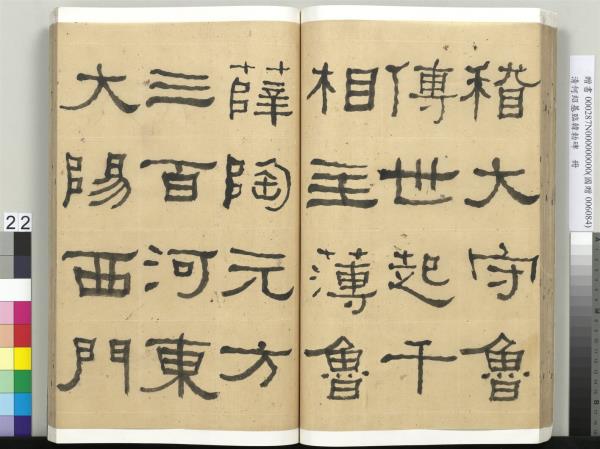 稽大守魯
傅世起千
相主薄魯
薛陶元方
三百河東
大陽西門
贈書 000287N000000000(國贈 006084)
清何紹基臨韓勑碑 冊
22